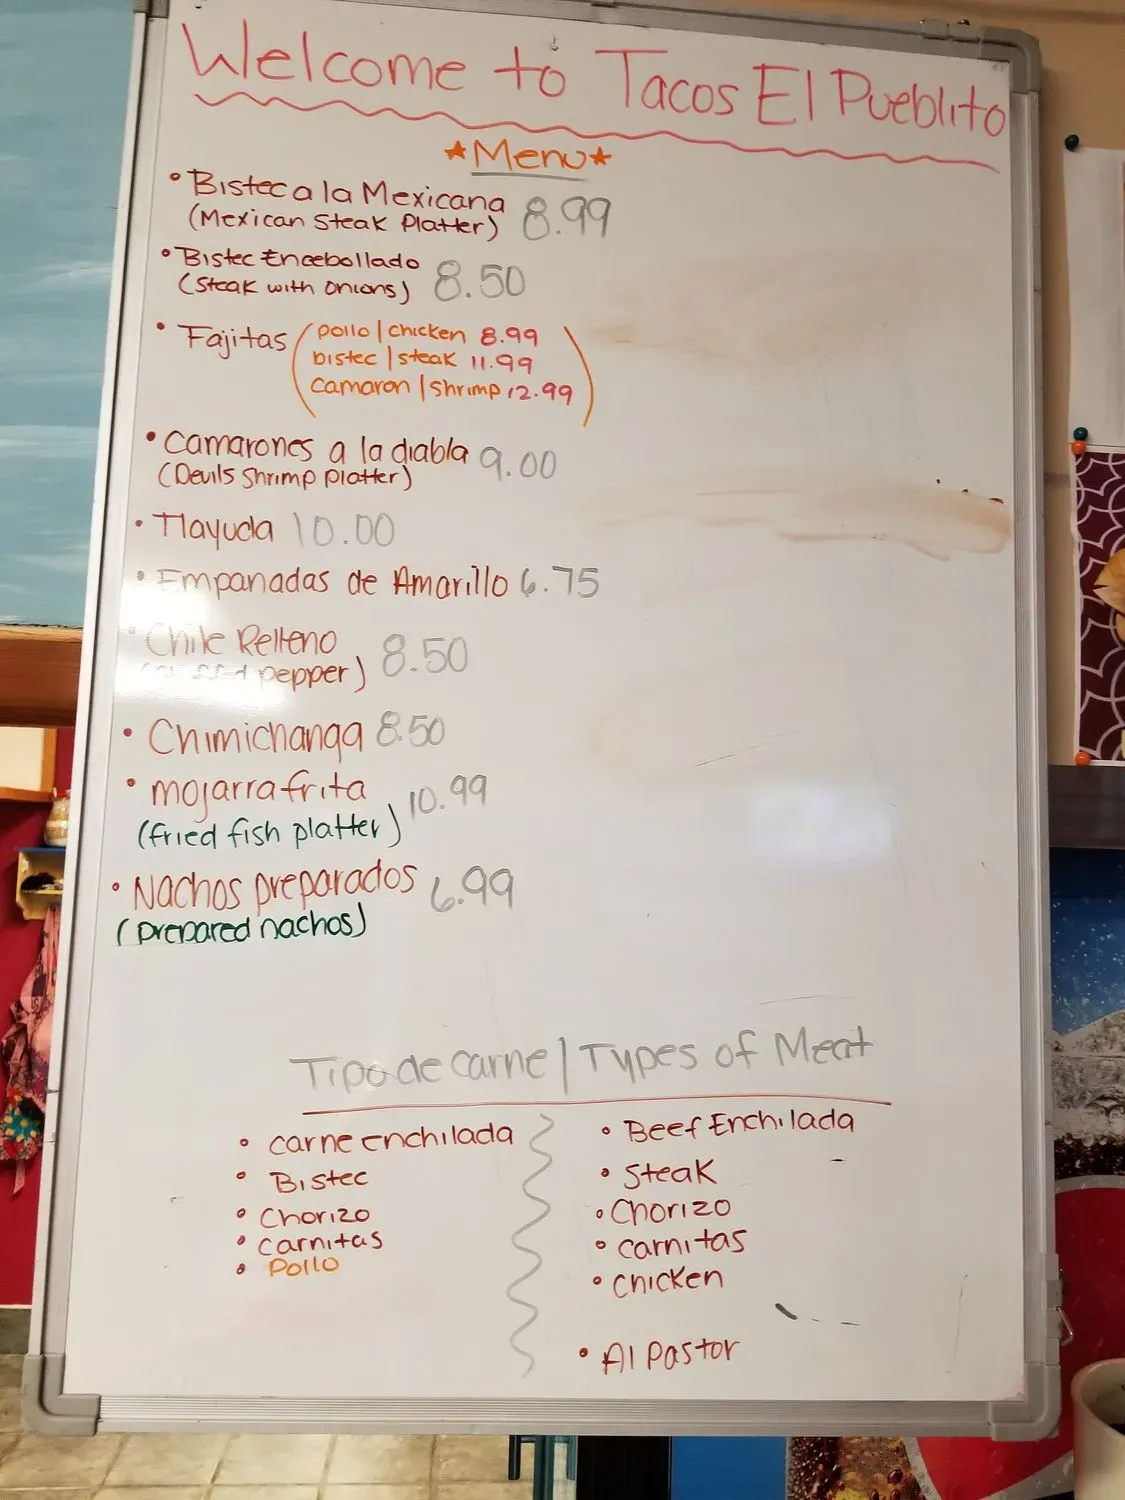 Welcome to Tacos El Pueblito
★Menu★
• Bistec a la Mexicana 8.99
(Mexican Steak Platter)
• Bistec Encebollado 8.50
(Steak with onions)
• Fajitas (pollo | chicken 8.99
bistec | steak 11.99
camaron | shrimp 12.99)
• Camarones a la diabla 9.00
(Devils Shrimp platter)
• Tlayuda 10.00
• Empanadas de Amarillo 6.75
• Chile Relleno 8.50
pepper)
• Chimichanga 8.50
• mojarra frita 10.99
(fried fish platter)
• Nachos preparados 6.99
(prepared nachos)
Tipo de carne | Types of Meat
• carne enchilada
• Bistec
• Chorizo
• carnitas
• Pollo
• Beef Enchilada
• Steak
• Chorizo
• carnitas
• chicken
• Al Pastor